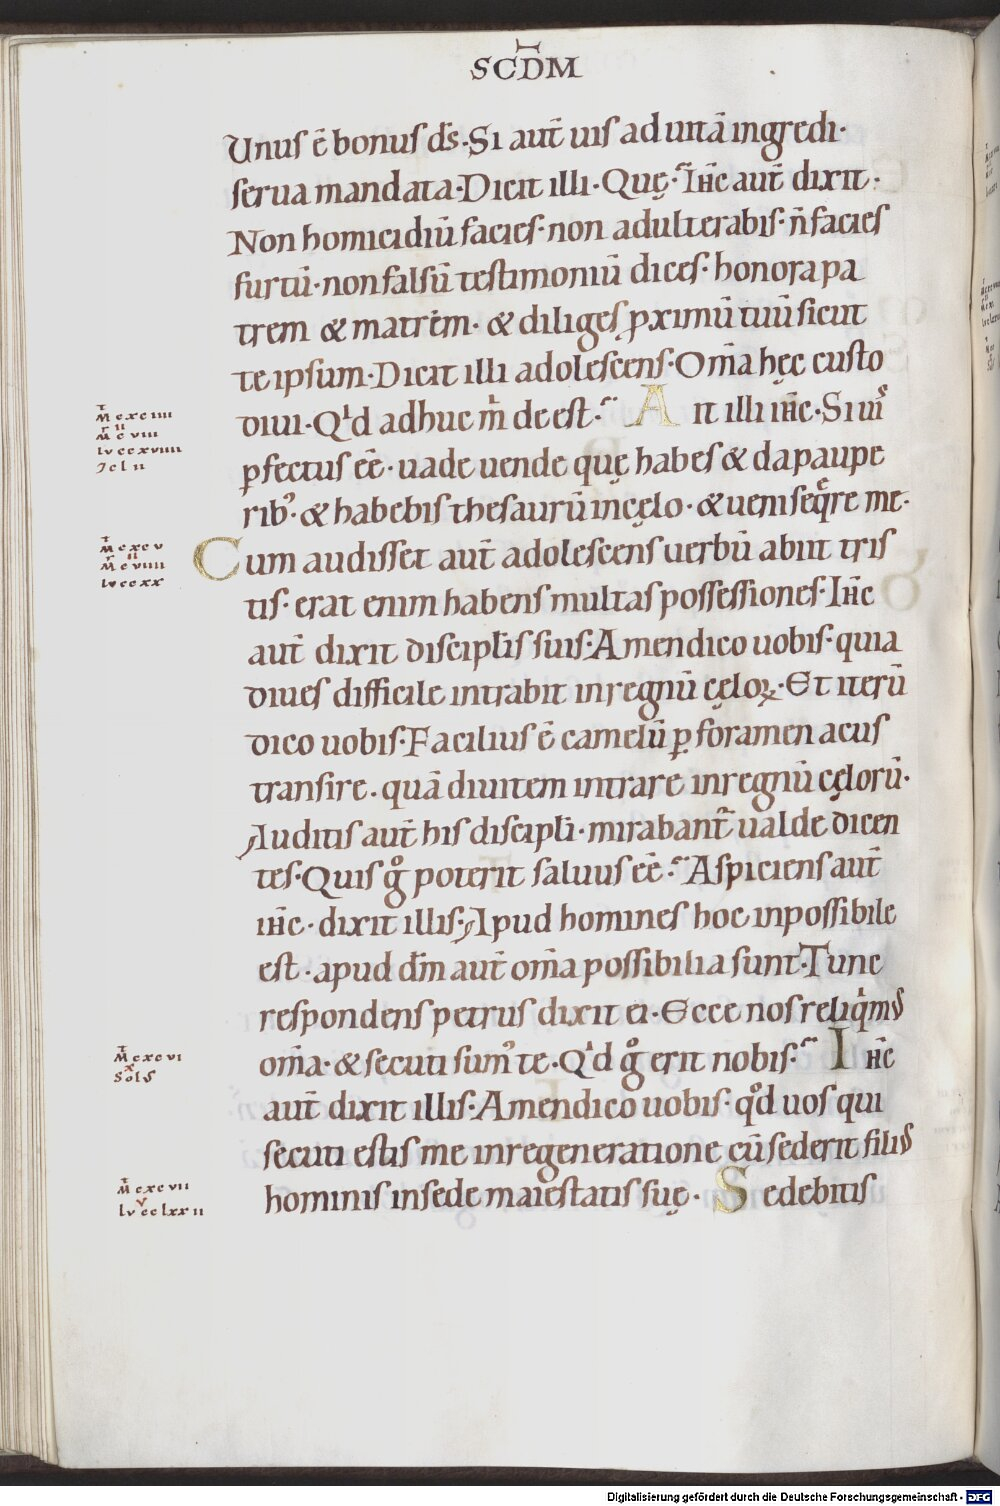 SCD̄M
Unuſ ē bonuſ dſ̄. Si aut̄ uiſ ad uitā ingredi.
ſerua mandata. Dicit illi. Quę. Iħc aut̄ dixit.
Non homicidiū facieſ. non adulterabiſ. n̄ facieſ
furtū. non falſū teſtimoniū diceſ. honora pa
trem & matrem. & diligeſ ꝓximū tuū ſicut
te ipſum. Dicit illi adoleſcenſ. Om̄a hęc cuſto
diui. Qd adhuc m̄ de eſt. Ait illi iħc. Si uiſ
ꝑfectuſ eē. uade uende quę habeſ & da paupe
rib᾽. & habebiſ theſaurū in cęlo. & ueni ſeq̄re me.
Cum audiſſet aut̄ adoleſcenſ uerbū abiit triſ
tiſ. erat enim habenſ multaſ poſſeſſioneſ. Iħc
aut̄ dixit diſcipliſ ſuiſ. Amen dico uobiſ. quia
diueſ difficile intrabit in regnū cęloꝝ. Et iterū
dico uobiſ. Faciliuſ ē camelū ꝑ foramen acuſ
tranſire. quā diuitem intrare in regnū cęlorū.
Auditiſ aut̄ hiſ diſcipli. mirabant̄ ualde dicen
teſ. Quiſ gͦ poterit ſaluuſ eē. Aſpicienſ aut̄
iħc. dixit illiſ. Apud homineſ hoc inpoſſibile
eſt. apud dm̄ aut̄ om̄a poſſibilia ſunt. Tunc
reſpondenſ petruſ dixit ei. Ecce noſ reliq̇mſ
om̄a. & ſecuti ſum᾽ te. Qd gͦ erit nobiſ. Iħc
aut̄ dixit illiſ. Amen dico uobiſ. qd uoſ qui
ſecuti eſtiſ me in regeneratione cū ſederit filiſ
hominiſ in ſede maieſtatiſ ſuę. Sedebitiſ
Digitalisierung gefördert durch die Deutsche Forschungsgemeinschaft - DFG